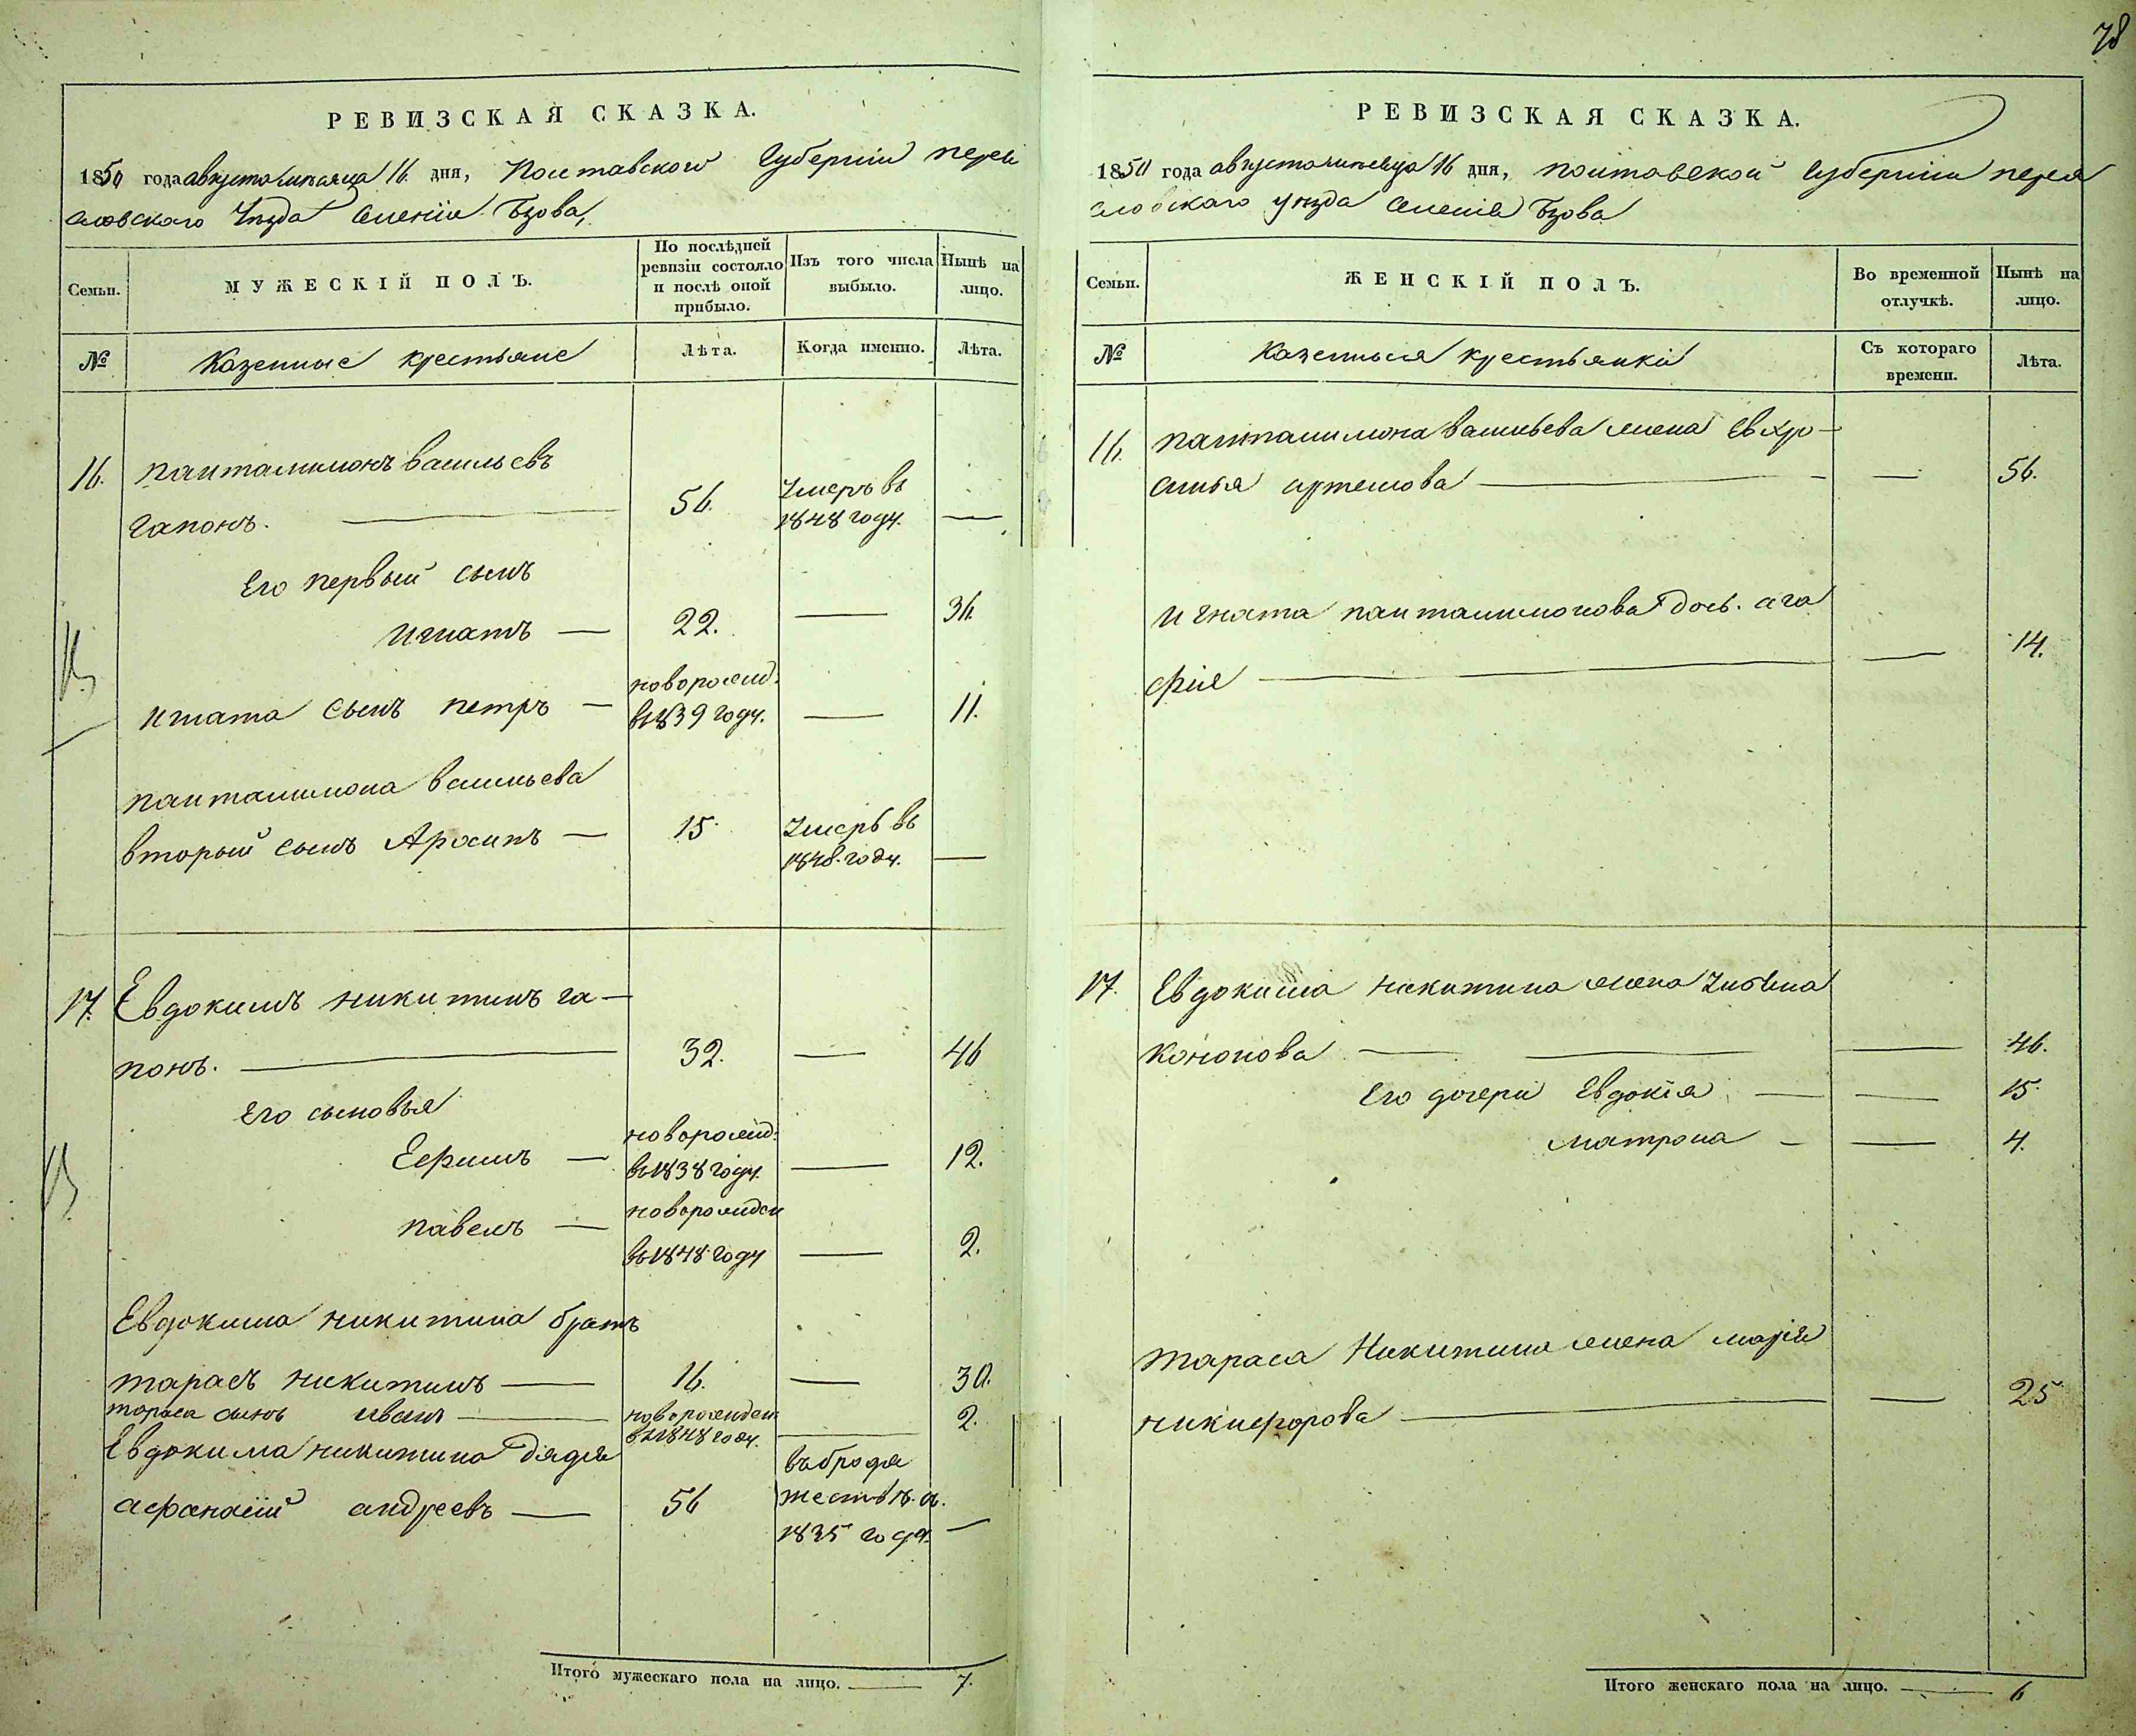 78
РЕВИЗСКАЯ СКАЗКА.
1850 года августа месяца 16 дня, Полтавской Губернии перея
словского Уезда Селения Бзова,
Семьи.
МУЖЕСКІЙ ПОЛЪ.
По послѣдней
ревизіи состояло
и послѣ оной
прибыло.
Изъ того числа
выбыло.
Нынѣ на
лицо.
№
Казенные крестьяне
Лѣта.
Когда именно.
Лѣта.
16. панталимонъ васильевъ
гапонъ. — 56. Умеръ въ
1848 году. —
Его первый сынъ
игнатъ — 22. — 36.
игната сынъ петръ — новорожд.
въ 1839 году. — 11.
панталимона васильева
вторый сынъ Архипъ — 15. Умеръ въ
1848. году. —
17. Евдокимъ никитинъ га–
понъ. — 32. — 46
Его сыновья
Ефимъ — новорожд:
въ 1838 году. — 12.
павелъ — новорожден
въ 1848 году — 2.
Евдокима никитина братъ
тарасъ никитинъ — 16. — 30.
тараса сынъ иванъ — новорожден
въ 1848 году. — 2.
Евдокима никитина дядя
афанасій андреевъ — 56 въ бродя
жествѣ съ
1835 года. —
Итого мужескаго пола на лицо. — 7.
РЕВИЗСКАЯ СКАЗКА.
1850 года августа месяца 16 дня, полтавской Губерніи перея
словскаго уезда Селенія Бзова
Семьи.
ЖЕНСКІЙ ПОЛЪ.
Во временной
отлучкѣ.
Нынѣ на
лицо.
№
Казенныя крестьянки
Съ котораго
времени.
Лѣта.
16. панталимона васильева жена Евхро–
синья артемова — — 56.
игната панталимонова дочь. ага
фія — — 14.
17. Евдокима никитина жена Ульяна
кононова — — 46.
Его дочери Евдокія — — 15.
матрона — — 4.
тараса Никитина жена марія
никифорова — — 25
Итого женскаго пола на лицо. — 6